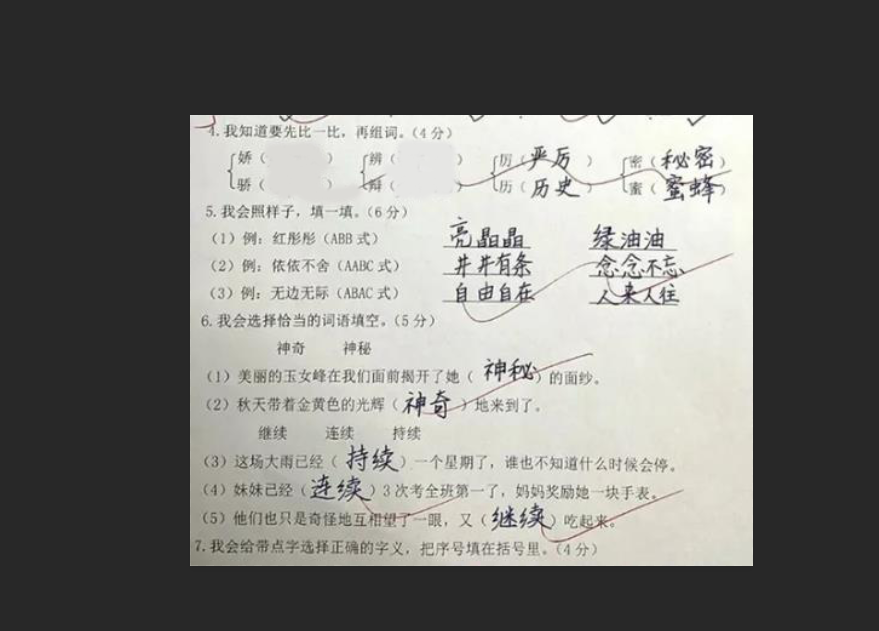 4.我知道要先比一比，再组词。（4分）
娇（ ） 辨（ ） 厉（严厉） 密（秘密）
骄（ ） 辩（ ） 历（历史） 蜜（蜜蜂）
5.我会照样子，填一填。（6分）
（1）例：红彤彤（ABB式） 亮晶晶 绿油油
（2）例：依依不舍（AABC式） 井井有条 念念不忘
（3）例：无边无际（ABAC式） 自由自在 人来人往
6.我会选择恰当的词语填空。（5分）
神奇 神秘
（1）美丽的玉女峰在我们面前揭开了她（神秘）的面纱。
（2）秋天带着金黄色的光辉（神奇）地来到了。
继续 连续 持续
（3）这场大雨已经（持续）一个星期了，谁也不知道什么时候会停。
（4）妹妹已经（连续）3次考全班第一了，妈妈奖励她一块手表。
（5）他们也只是奇怪地互相望了一眼，又（继续）吃起来。
7.我会给带点字选择正确的字义，把序号填在括号里。（4分）